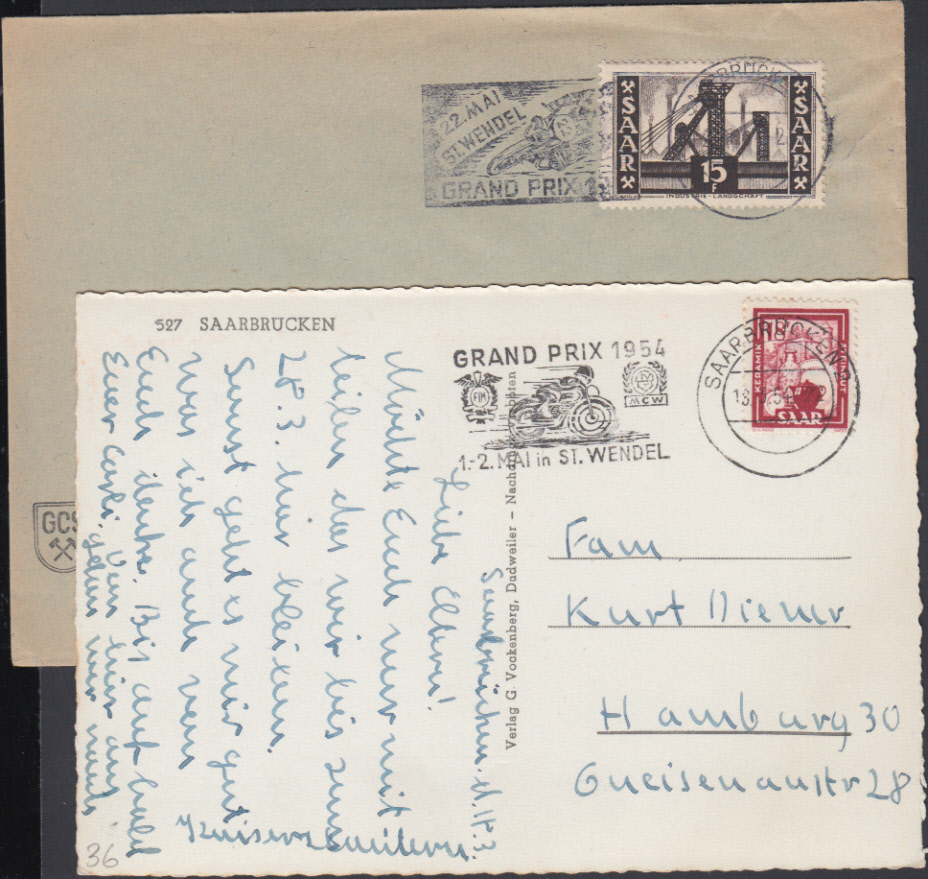 22. MAI
ST. WENDEL
GRAND PRIX
SAAR
SAAR
15
F
INDUSTRIE-LANDSCHAFT
GCS
527 SAARBRÜCKEN
GRAND PRIX 1954
FIM
MCW
1.-2. MAI in ST. WENDEL
SAARBRÜCKEN
KERAMIK
SAAR
Verlag G. Vockenberg, Dudweiler –
Fam
Kurt Diemr
Hamburg 30
Gneisenaustr 28
Saarbrücken. d. 17. 3
Liebe Eltern!
Möchte Euch nur mit
teilen das wir bis zum
28. 3. hier bleiben.
Sonst geht es mir gut
was ich auch von
Euch denke. Bis auf bald
Euer
Von hier aus
gehen wir nach
36